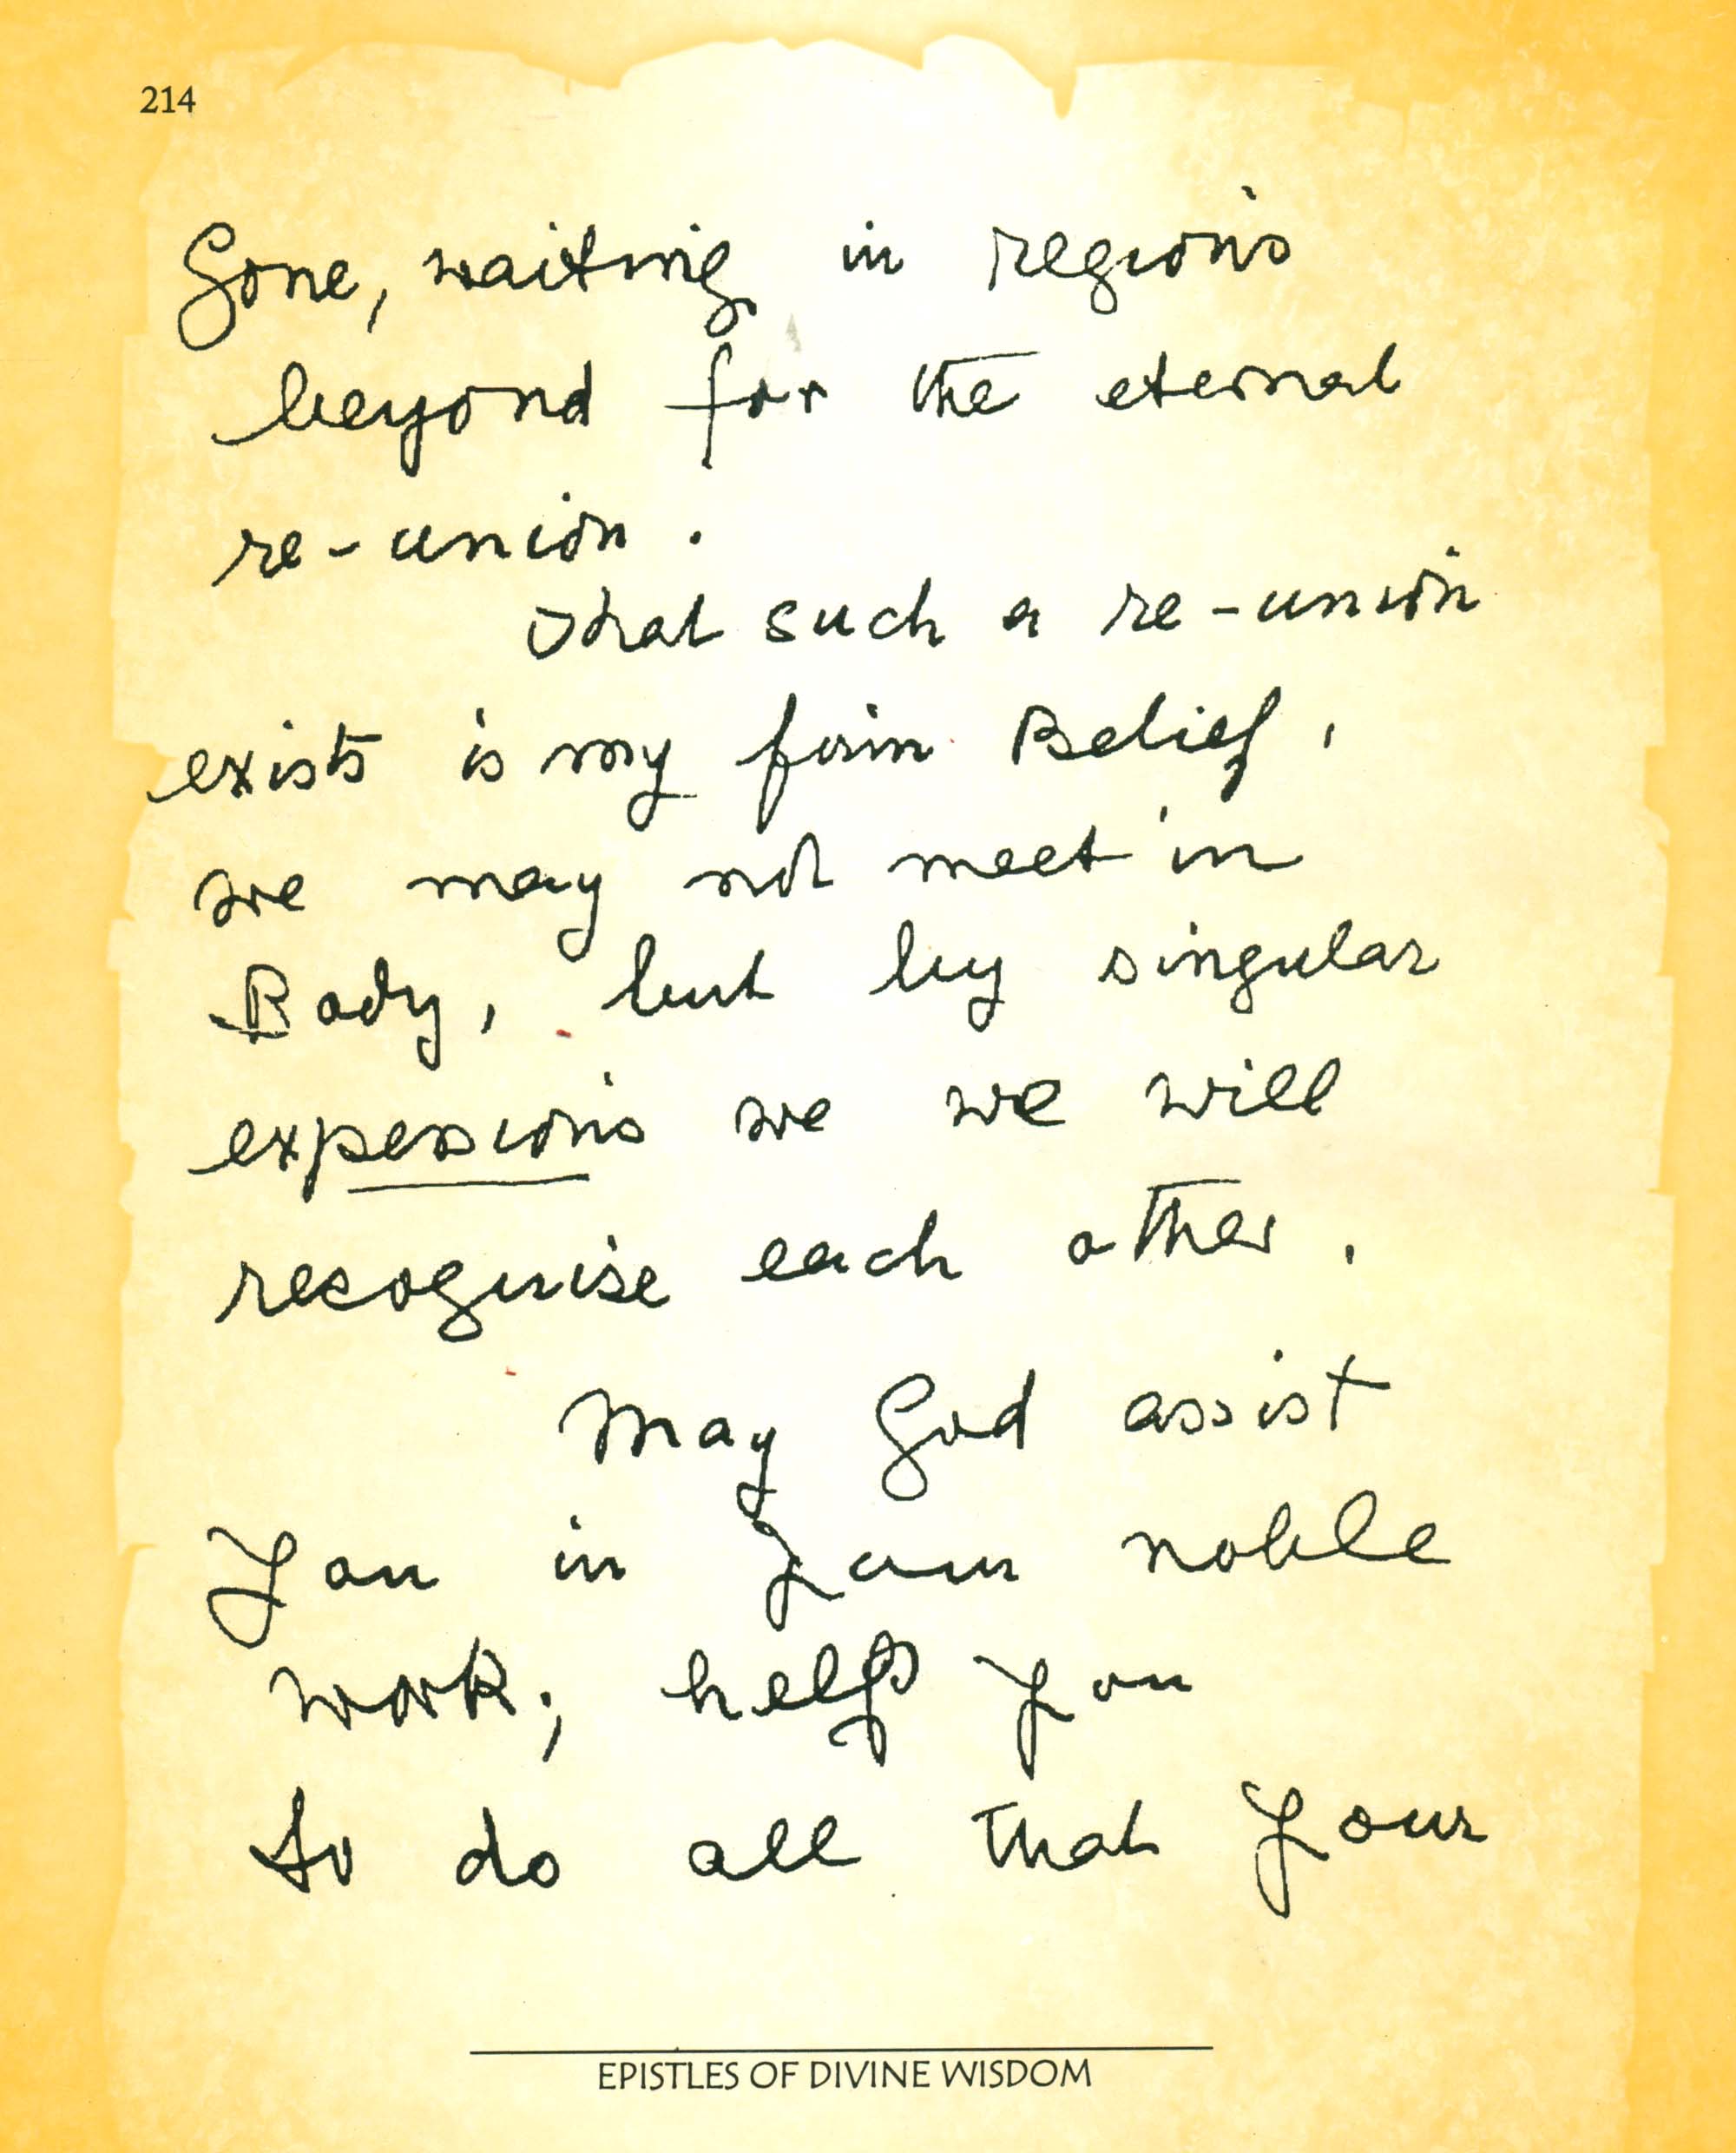 214
Gone, waiting in regions
beyond for the eternal
re-union.
That such a re-union
exists is my firm Belief,
we may not meet in
Body, but by singular
expessions we we will
recognise each other.
May God assist
You in Your noble
work; help you
to do all that Your
EPISTLES OF DIVINE WISDOM